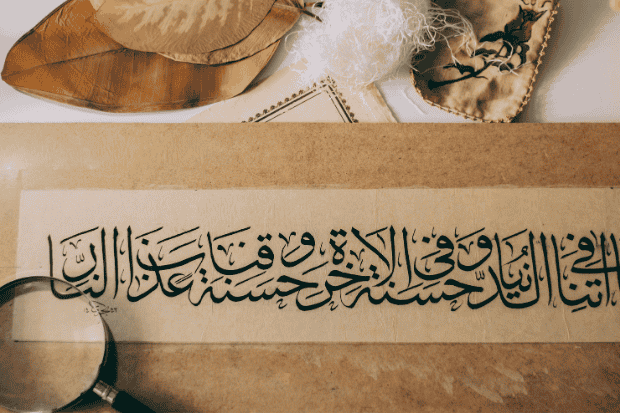 اتنا في الدنيا حسنة وفي الاخرة حسنة وقنا عذاب النار